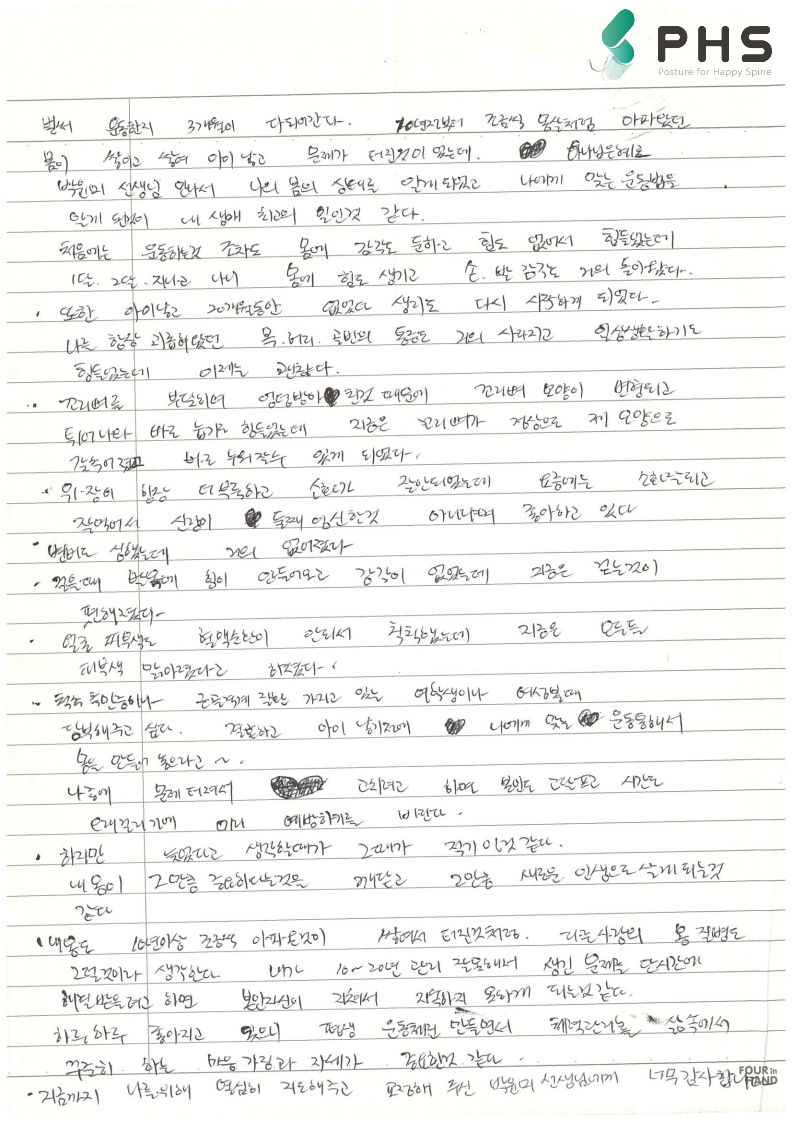 PHS
Posture for Happy Spine
벌써 운동한지 3개월이 다되어간다. 10년전부터 조금씩 몸살처럼 아파왔던
몸이 쌓이고 쌓여 아이 낳고 문제가 터진것이 있는데. 하나님은혜로
박윤미 선생님 만나서 나의 몸의 상태를 알게 되었고 나에게 맞는 운동법을
알게 된것이 내 생애 최고의 일인것 같다.
처음에는 운동하는것 조차도 몸에 감각도 둔하고 힘도 없어서 힘들었는데
1달. 2달. 지나고 나니 몸에 힘도 생기고 손. 발 감각도 거의 돌아왔다.
또한 아이낳고 20개월동안 없었다 생리도 다시 시작하게 되었다.
나를 항상 괴롭혀왔던 목.허리. 골반의 통증도 거의 사라지고 일상생활하기도
힘들었는데 이제는 괜찮다.
꼬리뼈를 부딪히며 엉덩방아 찐것 때문에 꼬리뼈 모양이 변형되고
튀어나와 바로 눕기도 힘들었는데 지금은 꼬리뼈가 정상으로 제 모양으로
감속어졌고 바로 누워잘수 있게 되었다.
위·장이 항상 더부룩하고 소화가 잘안되었는데 요즘에는 소화잘되고
잘먹어서 신랑이 둘째 임신한것 아니냐며 좋아하고 있다
변비도 심했는데 거의 없어졌다
걸을때 발목에 힘이 안들어오고 감각이 없었는데 지금은 걷는것이
편해졌다
얼굴 피부색도 혈액순환이 안되서 칙칙했는데 지금은 모두들
피부색 맑아졌다고 하셨다.
척추측만증이나 근골격계 질환 가지고 있는 여학생이나 여성분때
당부해주고 싶다. 결혼하고 아이 낳기전에 나에게 맞는 운동통해서
몸을 만들어 놓으라고 ~.
나중에 문제 터져서 고치려고 하면 본인도 고달프고 시간도
오래걸리기에 미리 예방하기를 바란다.
하지만 늦었다고 생각할때가 그때가 적기 인것 같다.
내 몸이 그만큼 중요하다는것을 깨닫고 그만큼 새로운 인생으로 살게 되는것
같다
내몸도 10년이상 조금씩 아파온것이 쌓여서 터진것처럼. 다른사람의 몸 질병도
그럴것이라 생각한다. 내가 10~20년 관리 잘못해서 생긴 문제를 단시간에
해결 받을려고 하면 본인자신이 지쳐서 지속하지 못하게 되는것 같다.
하루, 하루 좋아지고 있으니 평생 운동체질 만들면서 체력관리를 삶속에서
꾸준히 하는 마음 가짐과 자세가 중요한것 같다.
지금까지 나를위해 열심히 지도해주고 교정해 주신 박윤미 선생님에게 너무 감사합니다
FOUR in HAND